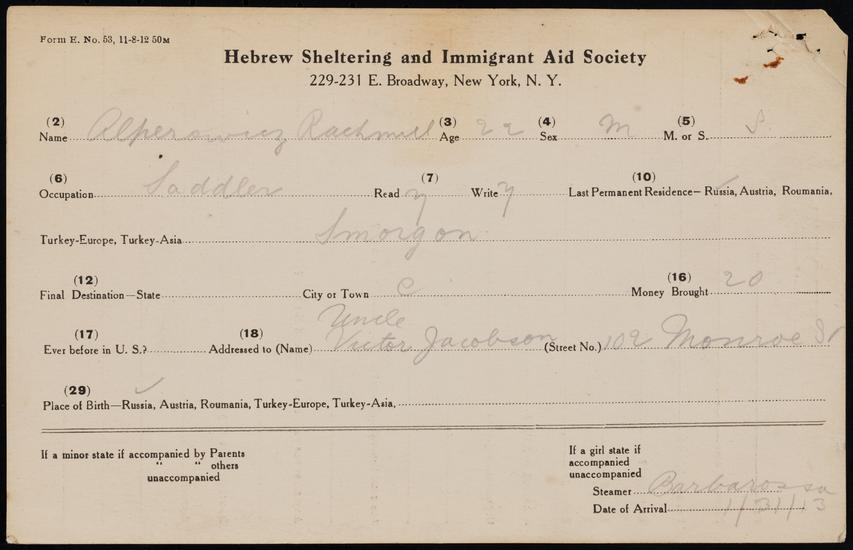 Form E. No. 53, 11-8-12 50M
Hebrew Sheltering and Immigrant Aid Society
229-231 E. Broadway, New York, N. Y.
(2) (3) (4) (5)
Name Alperowicz Rachmiel Age 22 Sex M M. or S. S.
(6) (7) (10)
Occupation Saddler Read y Write y Last Permanent Residence—Russia, Austria, Roumania,
Turkey-Europe, Turkey-Asia Smorgon
(12) (16)
Final Destination—State City or Town C Money Brought 20
(17) (18) Uncle
Ever before in U. S.? Addressed to (Name) Victor Jacobson (Street No.) 102 Monroe St
(29) ✓
Place of Birth—Russia, Austria, Roumania, Turkey-Europe, Turkey-Asia,
If a minor state if accompanied by Parents
" " others
unaccompanied
If a girl state if
accompanied
unaccompanied
Steamer Barbarossa
Date of Arrival 1/31/13